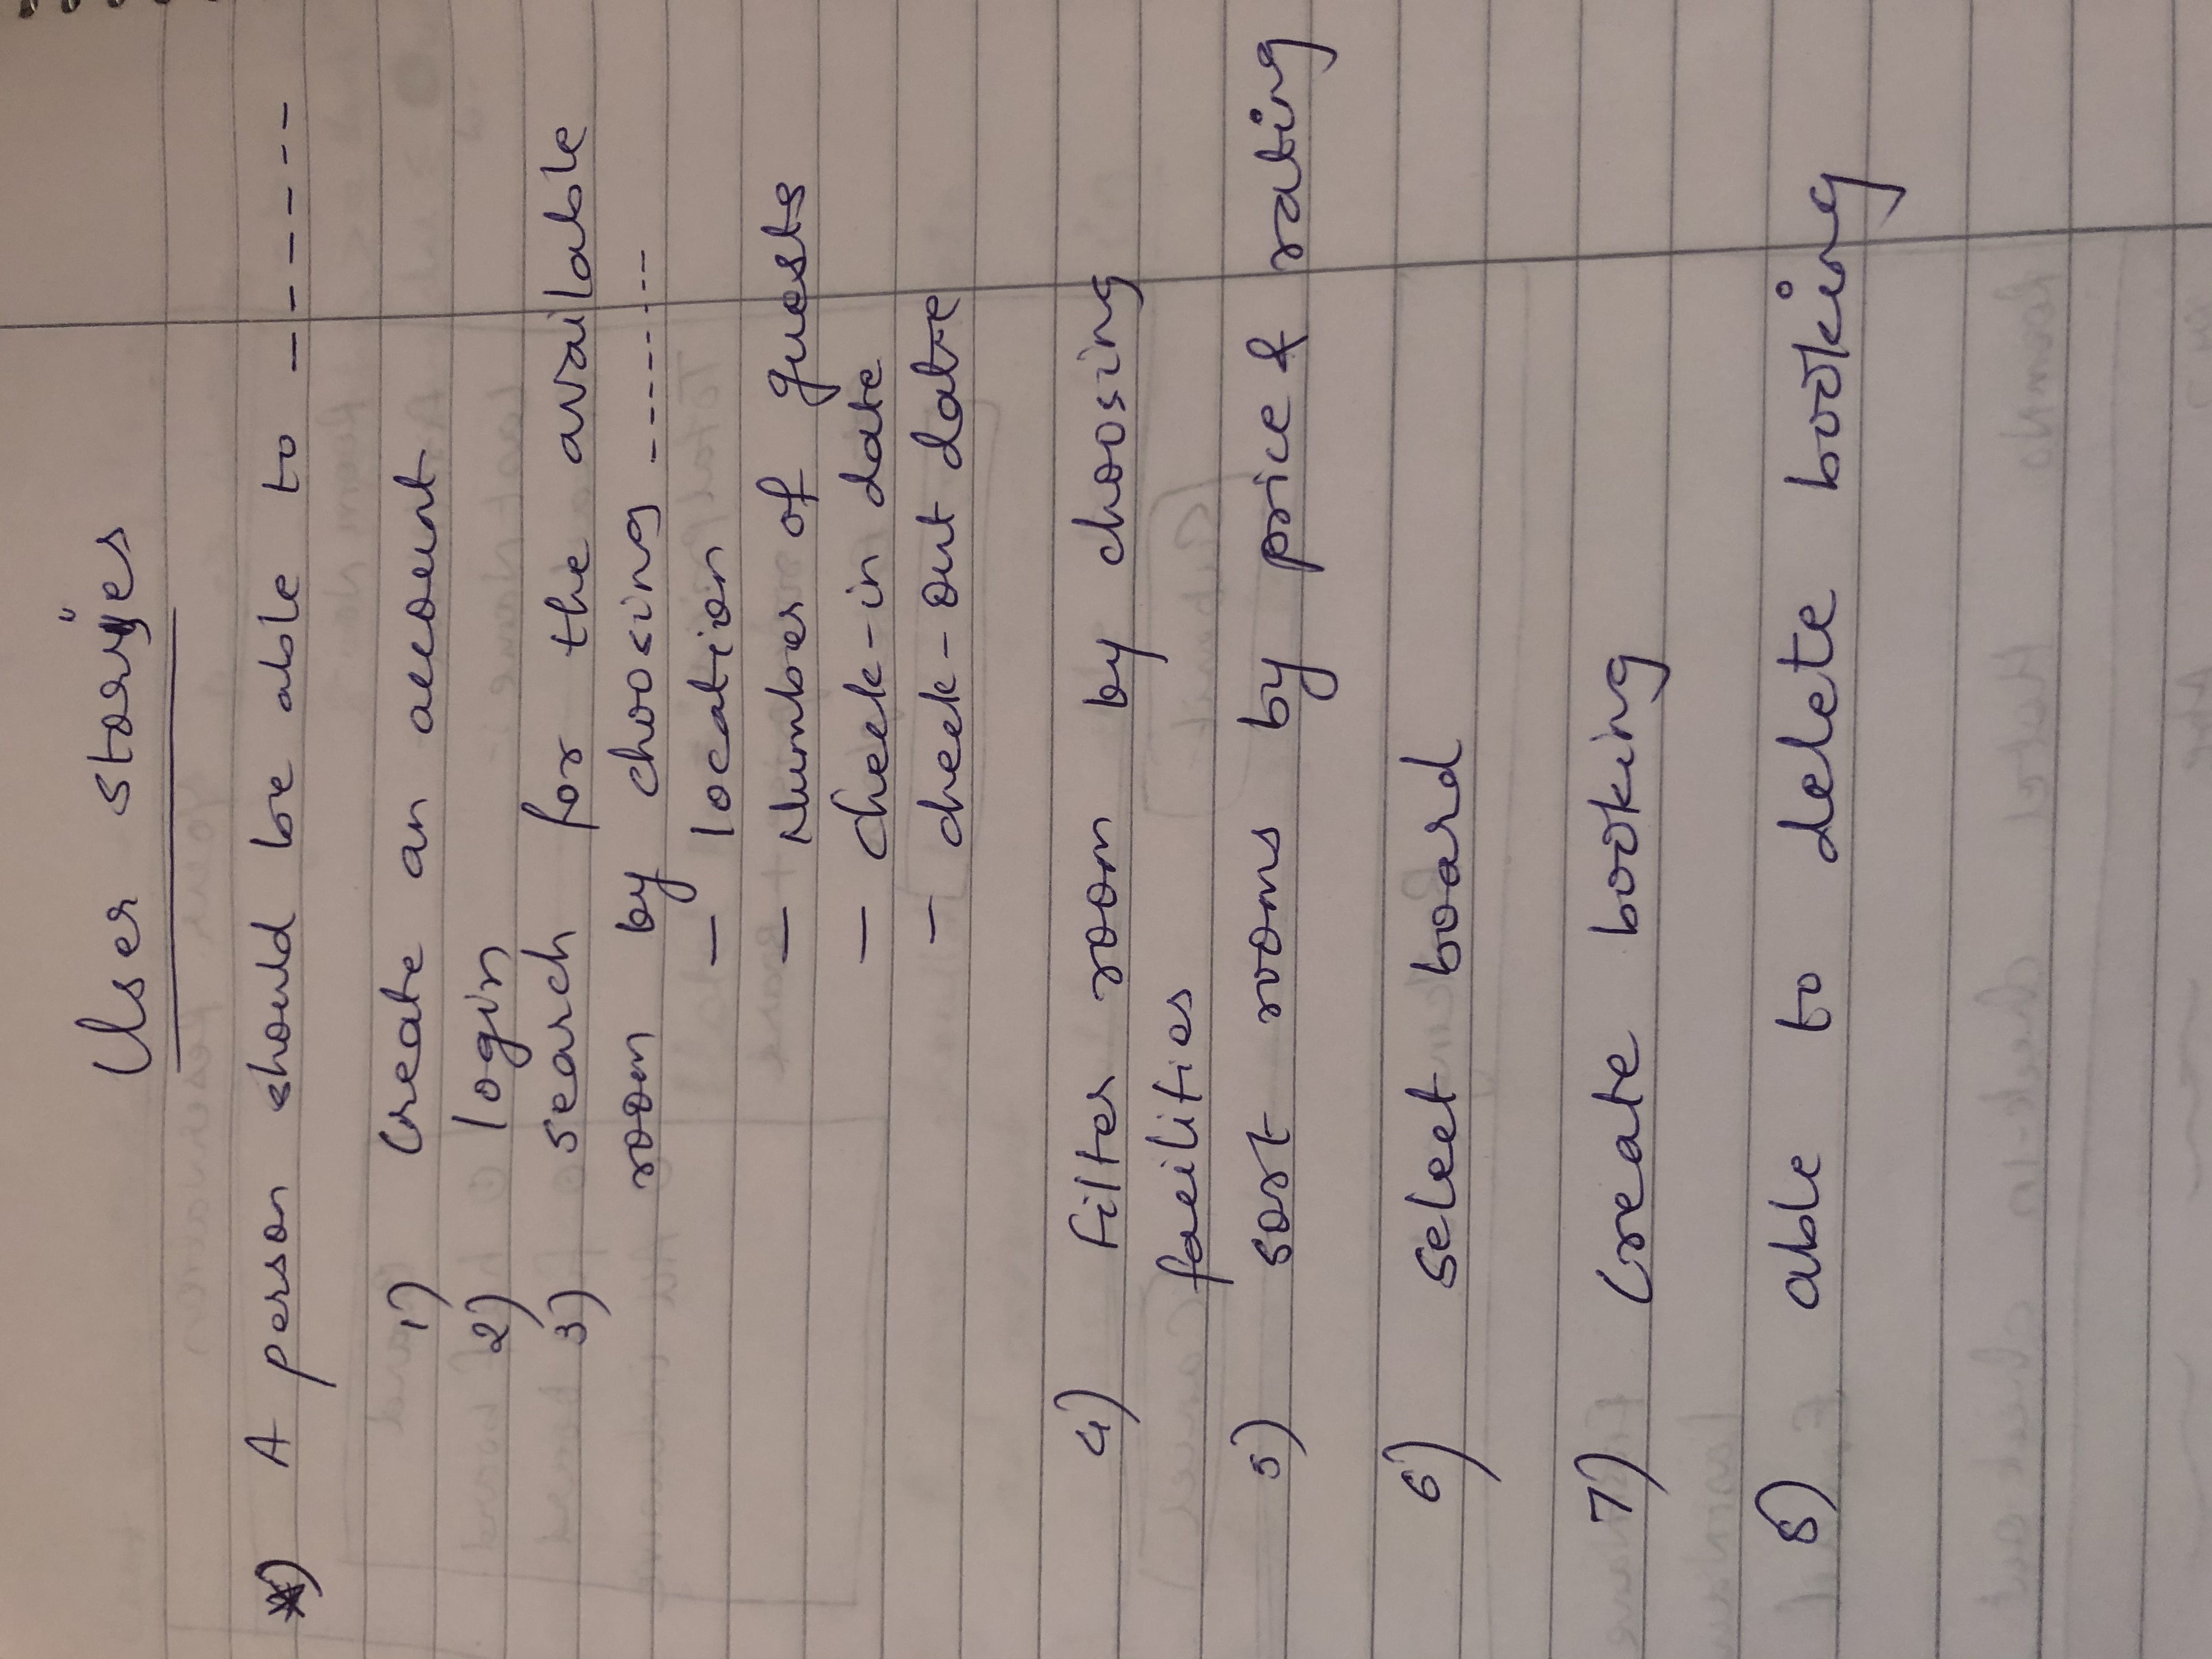 User stories
*) A person should be able to ------
1) Create an account
2) login
3) search for the available
room by choosing --------
- location
- Number of guests
- check-in date
- check-out date
4) filter room by choosing
facilities
5) sort rooms by price & rating
6) select board
7) Create booking
8) able to delete booking